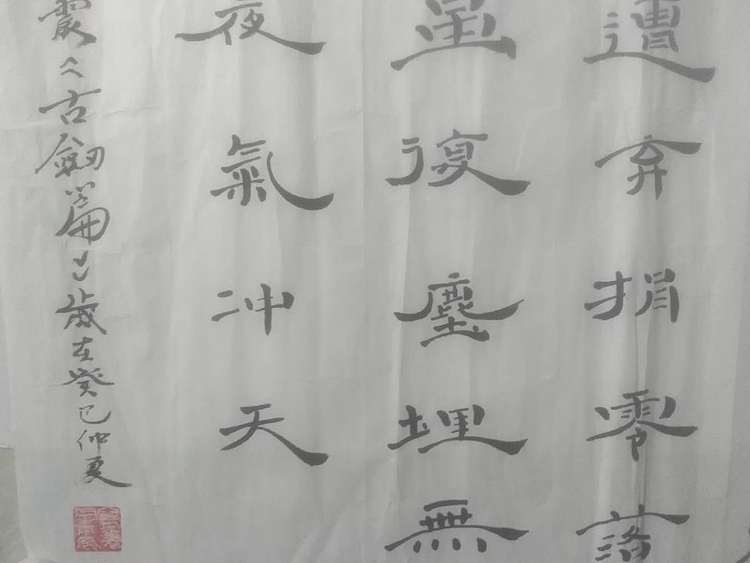 遭弃捐零落
虽復塵埋無
夜氣冲天
震《古劒篇》歲在癸巳仲夏